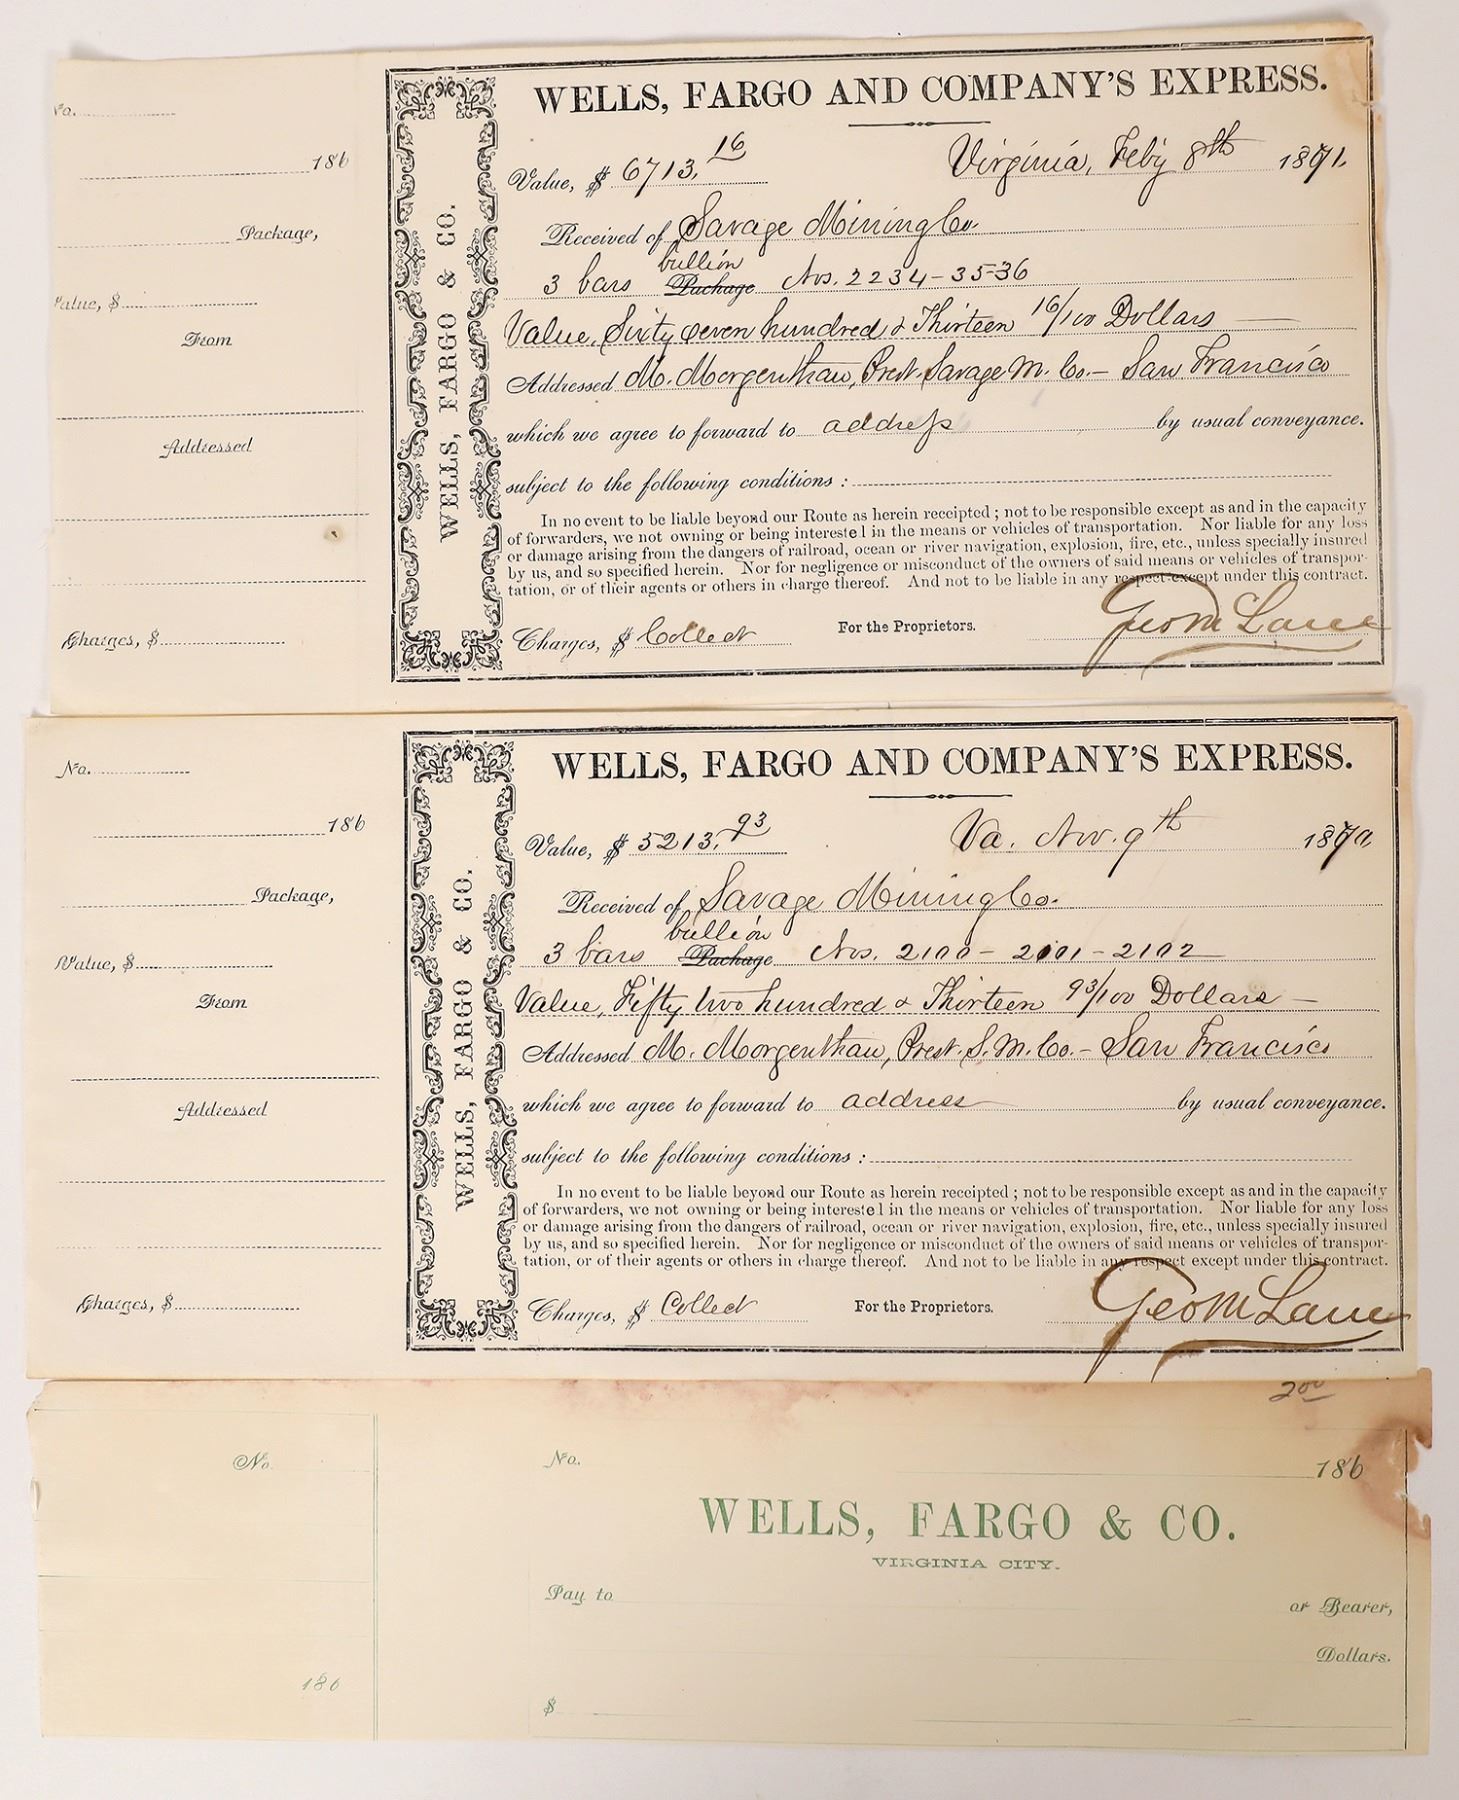 No.
186
Package,
Value, $
From
Addressed
Charges, $
WELLS, FARGO & CO.
WELLS, FARGO AND COMPANY'S EXPRESS.
Value, $ 6713.16 Virginia, Feby 8th 1871.
Received of Savage Mining Co.
bullion
3 bars Package Nos. 2234-35-36
Value, Sixty seven hundred & Thirteen 16/100 Dollars
Addressed M. Morgenthau, Prest. Savage M. Co. - San Francisco
which we agree to forward to address by usual conveyance.
subject to the following conditions :
In no event to be liable beyond our Route as herein receipted ; not to be responsible except as and in the capacity
of forwarders, we not owning or being intereste l in the means or vehicles of transportation. Nor liable for any loss
or damage arising from the dangers of railroad, ocean or river navigation, explosion, fire, etc., unless specially insured
by us, and so specified herein. Nor for negligence or misconduct of the owners of said means or vehicles of transpor-
tation, or of their agents or others in charge thereof. And not to be liable in any respect except under this contract.
Charges, $ Collect For the Proprietors. Geo M Lane
No.
186
Package,
Value, $
From
Addressed
Charges, $
WELLS, FARGO & CO.
WELLS, FARGO AND COMPANY'S EXPRESS.
Value, $ 5213.93 Va. Nov. 9th 1870,
Received of Savage Mining Co.
bullion
3 bars Package Nos. 2100 - 2101 - 2102
Value, Fifty two hundred & Thirteen 93/100 Dollars -
Addressed M. Morgenthau, Prest. S. M. Co. - San Francisco
which we agree to forward to address by usual conveyance.
subject to the following conditions :
In no event to be liable beyond our Route as herein receipted ; not to be responsible except as and in the capacity
of forwarders, we not owning or being intereste l in the means or vehicles of transportation. Nor liable for any loss
or damage arising from the dangers of railroad, ocean or river navigation, explosion, fire, etc., unless specially insured
by us, and so specified herein. Nor for negligence or misconduct of the owners of said means or vehicles of transpor-
tation, or of their agents or others in charge thereof. And not to be liable in any respect except under this contract.
Charges, $ Collect For the Proprietors. Geo M Lane
200
No.
186
No. 186
WELLS, FARGO & CO.
VIRGINIA CITY.
Pay to or Bearer,
Dollars.
$